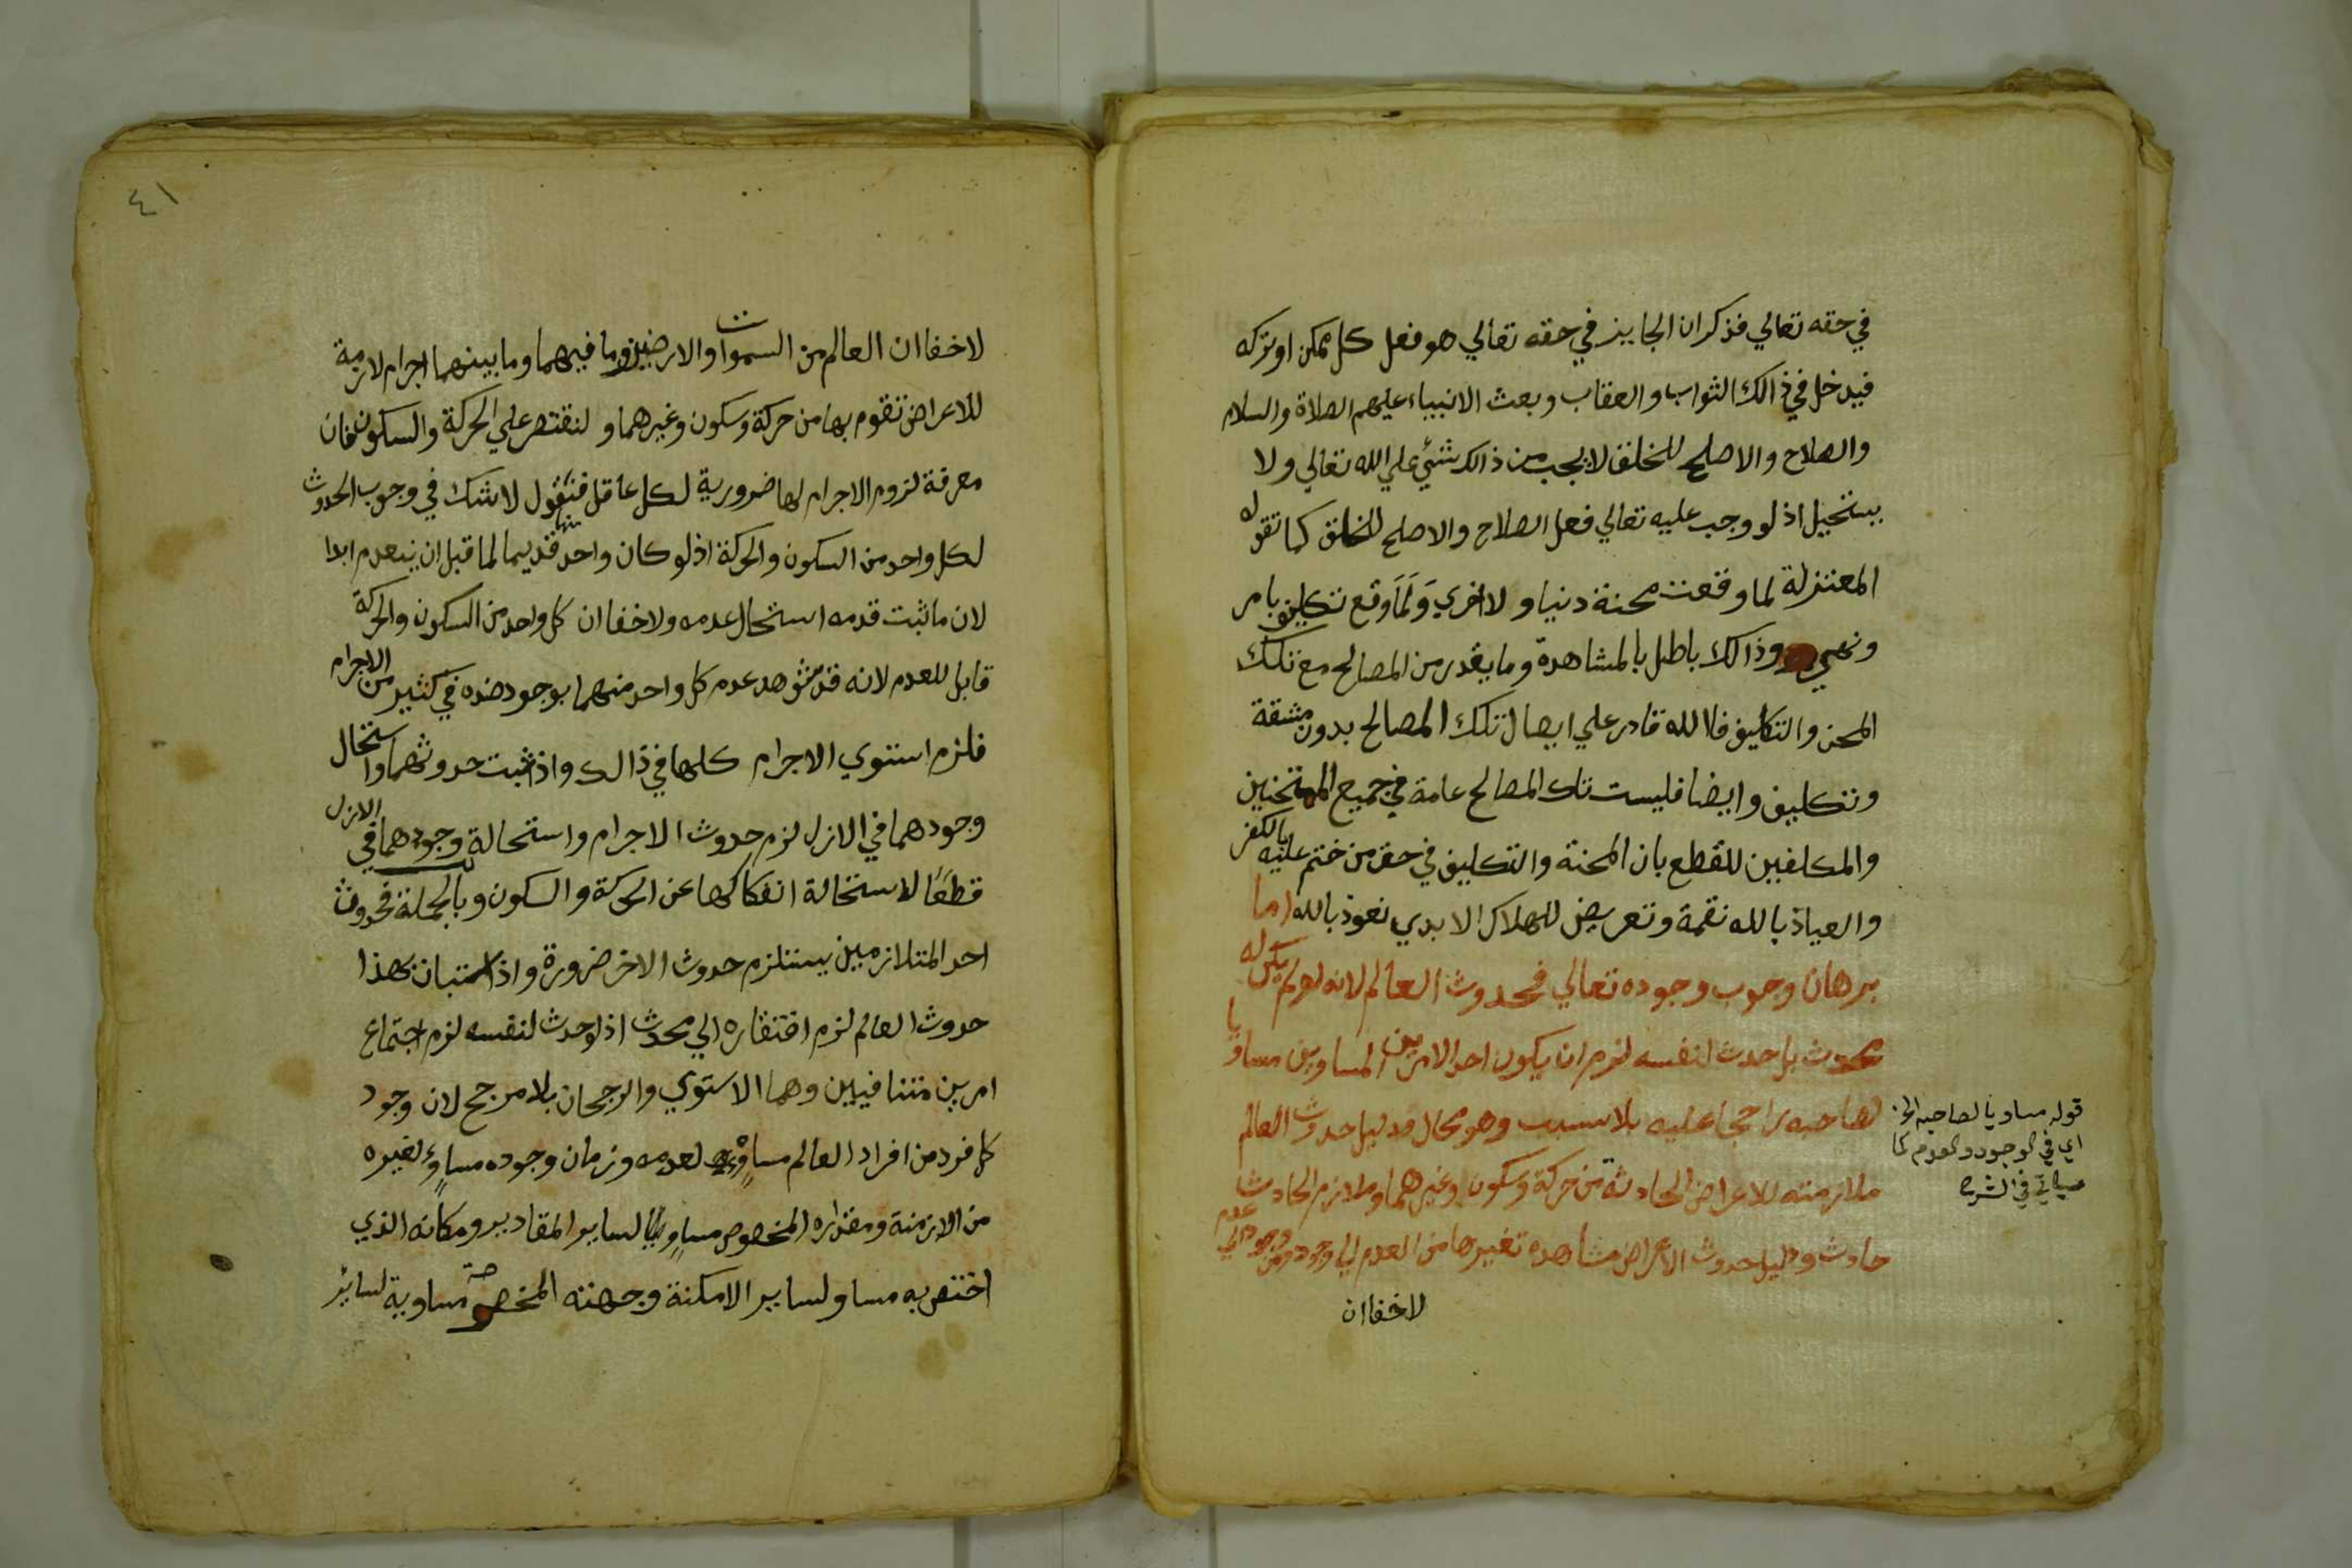 في حقه تعالي فذكر ان الجايز في حقه تعالي هو فعل كل ممكن او تركه
فيدخل في ذالك الثواب والعقاب وبعث الانبياء عليهم الصلاة والسلام
والصلاح والاصلح للخلق لا يجب من ذالك شئي علي الله تعالي ولا
يستحيل اذ لو وجب عليه تعالي فعل الصلاح والاصلح للخلق كما تقوله
المعتزلة لما وقعت محنة دنيا و لا اخري وَلَمَا وقع تكليف بامر
ونهي وذالك باطل بالمشاهدة وما يقدر من المصالح مع تلك
المحن والتكليف فاالله قادر علي ايصال تلك المصالح بدون مشقة
وتكليف وايضا فليست تلك المصالح عامة في جميع الممتحنين
والمكلفين للقطع بان المحنة والتكليف في حق من ختم عليه بالكفر
والعياذ بالله نقمة وتعريض للهلاك الابدي نعوذ بالله اما
برهان وجوب وجوده تعالي فحدوث العالم لانه لو لم يكن له
محدث بل حدث لنفسه لزم ان يكون احد الامرين المساوين مساويا
لصاحبه راجحا عليه بلا سبب وهو محال ودليل حدوث العالم
ملازمته للاعراض الحادثة من حركة وسكون وغيرهما وملازم الحادث
حادث ودليل حدوث الاعراض مشاهدة تغيرها من العدم الي وجود ومن وجود الي عدم
لاخفا ان
قوله مساويا لصاحبه الخ
اي في الوجود والعدم كما
سياتي في الشرح
٤١
لاخفا ان العالم من السموات والارضين وما فيهما وما بينهما اجرام لازمة
للاعراض تقوم بها من حركة وسكون وغيرهما و لنقتصر علي الحركة والسكون فان
معرفة لزوم الاجرام لها ضرورية لكل عاقل فنقول لا شك في وجوب الحدوث
لكل واحد من السكون والحركة اذ لو كان واحد منهما قديما لما قبل ان ينعدم ابدا
لان ما ثبت قدمه استحال عدمه ولا خفا ان كل واحد من السكون والحركة
قابل للعدم لانه قد شوهد عدم كل واحد منهما بوجود ضده في كثير من الاجرام
فلزم استوي الاجرام كلها في ذالك واذا ثبت حدوثهما واستحال
وجودهما في الازل لزم حدوث الاجرام واستحالة وجودهما في الازل
قطعًا لاستحالة انفكاكها عن الحركة والسكون وبالجملة فحدوث
احد المتلازمين يستلزم حدوث الاخر ضرورة واذا استبان بهذا
حدوث العالم لزم افتقاره الي محدث اذ لو حدث لنفسه لزم اجتماع
امرين متنافيين وهما الاستوي والرجحان بلا مرجح لان وجود
كل فرد من افراد العالم مساوٍ لعدمه وزمان وجوده مساوٍ لغيره
من الازمنة ومقداره المخصوص مساوٍ لساير المقادير ومكانه الذي
اختص به مساو لساير الامكنة وجهته المخصوصة مساوية لساير